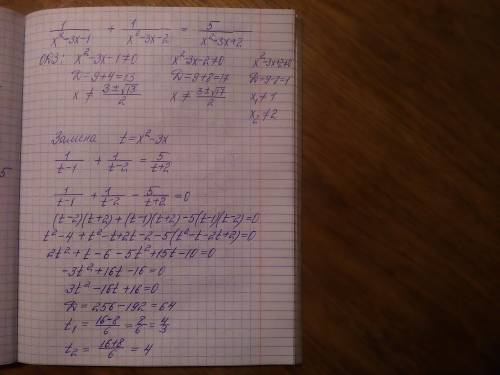 1/(x²-3x-1) + 1/(x²-3x-2) = 5/(x²-3x+2)
ОДЗ: x²-3x-1≠0 x²-3x-2≠0 x²-3x+2≠0
D=9+4=13 D=9+8=17 D=9-8=1
x ≠ (3±√13)/2 x ≠ (3±√17)/2 x₁≠1
x₂≠2
Замена t=x²-3x
1/(t-1) + 1/(t-2) = 5/(t+2)
1/(t-1) + 1/(t-2) - 5/(t+2) =0
(t-2)(t+2)+(t-1)(t+2)-5(t-1)(t-2)=0
t²-4+t²-t+2t-2-5(t²-t-2t+2)=0
2t²+t-6-5t²+15t-10=0
-3t²+16t-16=0
3t²-16t+16=0
D=256-192=64
t₁ = (16-8)/6 = 8/6 = 4/3
t₂ = (16+8)/6 = 4
5